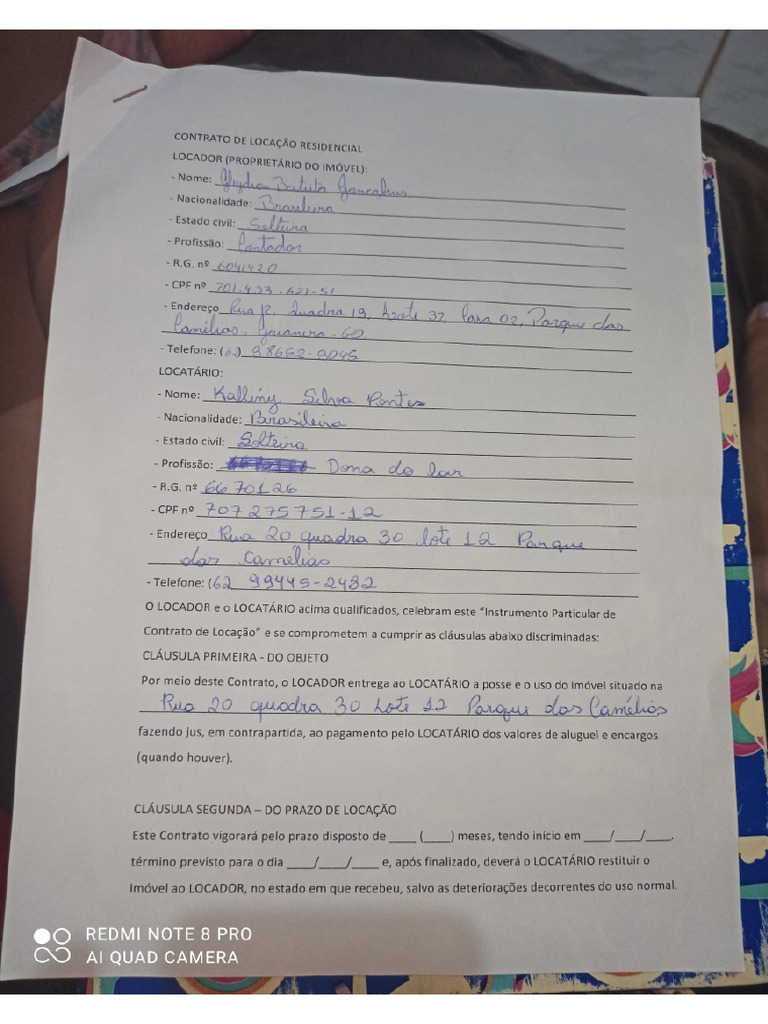 CONTRATO DE LOCAÇÃO RESIDENCIAL
LOCADOR (PROPRIETÁRIO DO IMÓVEL):
- Nome: Batista Goncalves
- Nacionalidade: Brasileira
- Estado civil: Solteira
- Profissão: Contador
- R.G. nº 6041420
- CPF nº 701.433.621-51
- Endereço Rua 12, Quadra 19, Lote 32, Casa 02, Parque das
Camélias, Goianira-GO
- Telefone: (62) 98652-9045
LOCATÁRIO:
- Nome: Kalliny Silva Pontes
- Nacionalidade: Brasileira
- Estado civil: Solteira
- Profissão: Dona do lar
- R.G. nº 6670126
- CPF nº 707275751-12
- Endereço Rua 20 quadra 30 lote 12 Parque
das Camélias
- Telefone: (62 99445-2482
O LOCADOR e o LOCATÁRIO acima qualificados, celebram este "Instrumento Particular de
Contrato de Locação" e se comprometem a cumprir as cláusulas abaixo discriminadas:
CLÁUSULA PRIMEIRA - DO OBJETO
Por meio deste Contrato, o LOCADOR entrega ao LOCATÁRIO a posse e o uso do imóvel situado na
Rua 20 quadra 30 Lote 12 Parque das Camélias
fazendo jus, em contrapartida, ao pagamento pelo LOCATÁRIO dos valores de aluguel e encargos
(quando houver).
CLÁUSULA SEGUNDA – DO PRAZO DE LOCAÇÃO
Este Contrato vigorará pelo prazo disposto de ____ (____) meses, tendo início em ____/____/____,
término previsto para o dia ____/____/____ e, após finalizado, deverá o LOCATÁRIO restituir o
Imóvel ao LOCADOR, no estado em que recebeu, salvo as deteriorações decorrentes do uso normal.
REDMI NOTE 8 PRO
AI QUAD CAMERA